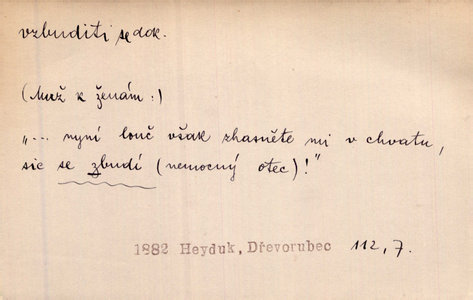 vzbuditi se dok.
(Muž k ženám:)
„... nyní louč však zhasněte mi v chvatu,
sic se zbudí (nemocný otec)!"
1882 Heyduk, Dřevorubec 112, 7.